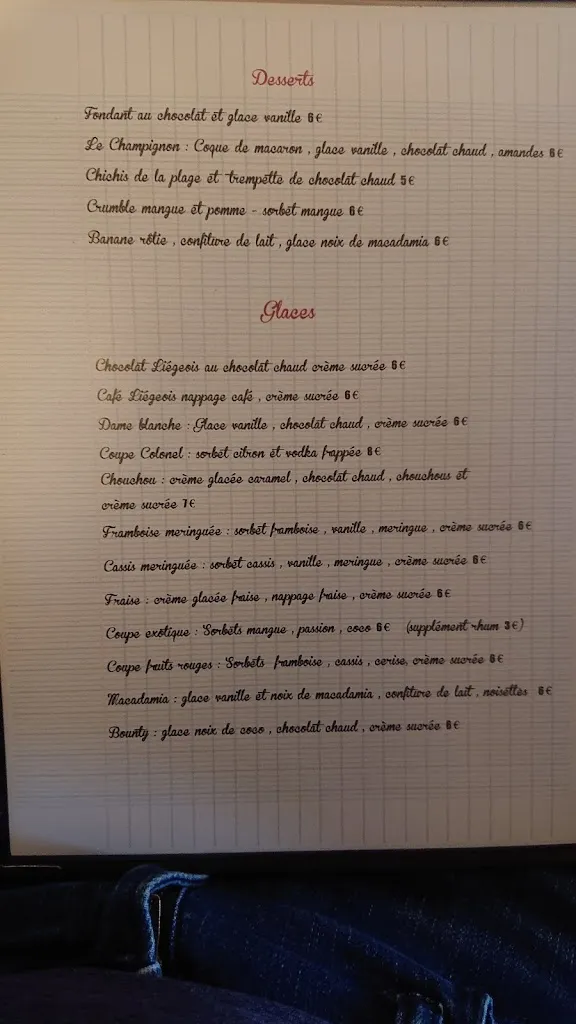 Desserts
Fondant au chocolat et glace vanille 6€
Le Champignon : Coque de macaron , glace vanille , chocolat chaud , amandes 6€
Chichis de la plage et trempette de chocolat chaud 5€
Crumble mangue et pomme - sorbet mangue 6€
Banane rôtie , confiture de lait , glace noix de macadamia 6€
Glaces
Chocolat Liégeois au chocolat chaud crème sucrée 6€
Café Liégeois nappage café , crème sucrée 6€
Dame blanche : Glace vanille , chocolat chaud , crème sucrée 6€
Coupe Colonel : sorbet citron et vodka frappée 6€
Chouchou : crème glacée caramel , chocolat chaud , chouchous et
crème sucrée 7€
Framboise meringuée : sorbet framboise , vanille , meringue , crème sucrée 6€
Cassis meringuée : sorbet cassis , vanille , meringue , crème sucrée 6€
Fraise : crème glacée fraise , nappage fraise , crème sucrée 6€
Coupe exotique : Sorbets mangue , passion , coco 6€ (supplément rhum 3€)
Coupe fruits rouges : Sorbets framboise , cassis , cerise, crème sucrée 6€
Macadamia : glace vanille et noix de macadamia , confiture de lait , noisettes 6€
Bounty : glace noix de coco , chocolat chaud , crème sucrée 6€